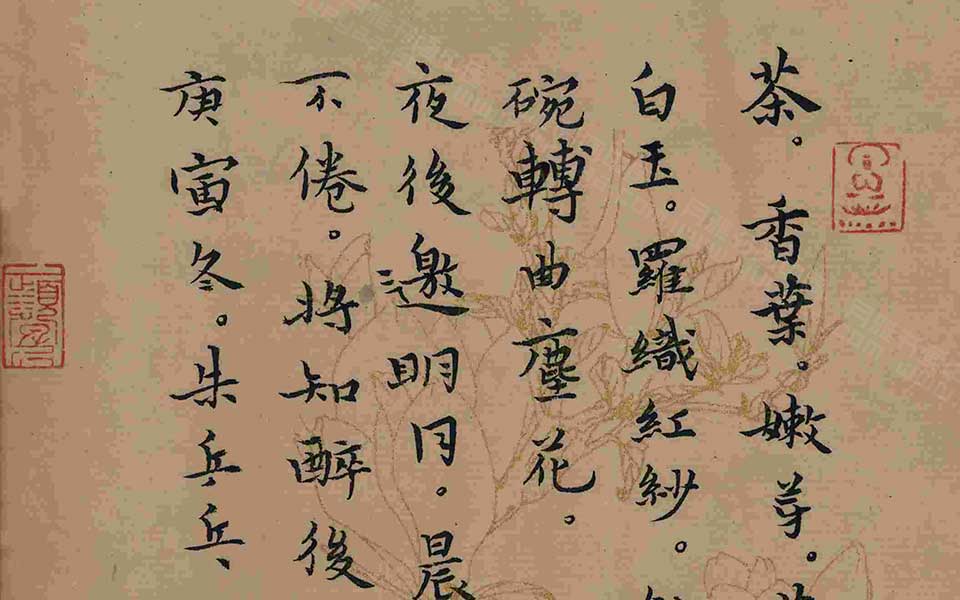 茶。香葉。嫩芽。
白玉。羅織紅紗。
碗轉曲塵花。
夜後邀明月。晨
不倦。將知醉後
庚寅冬。朱兵兵